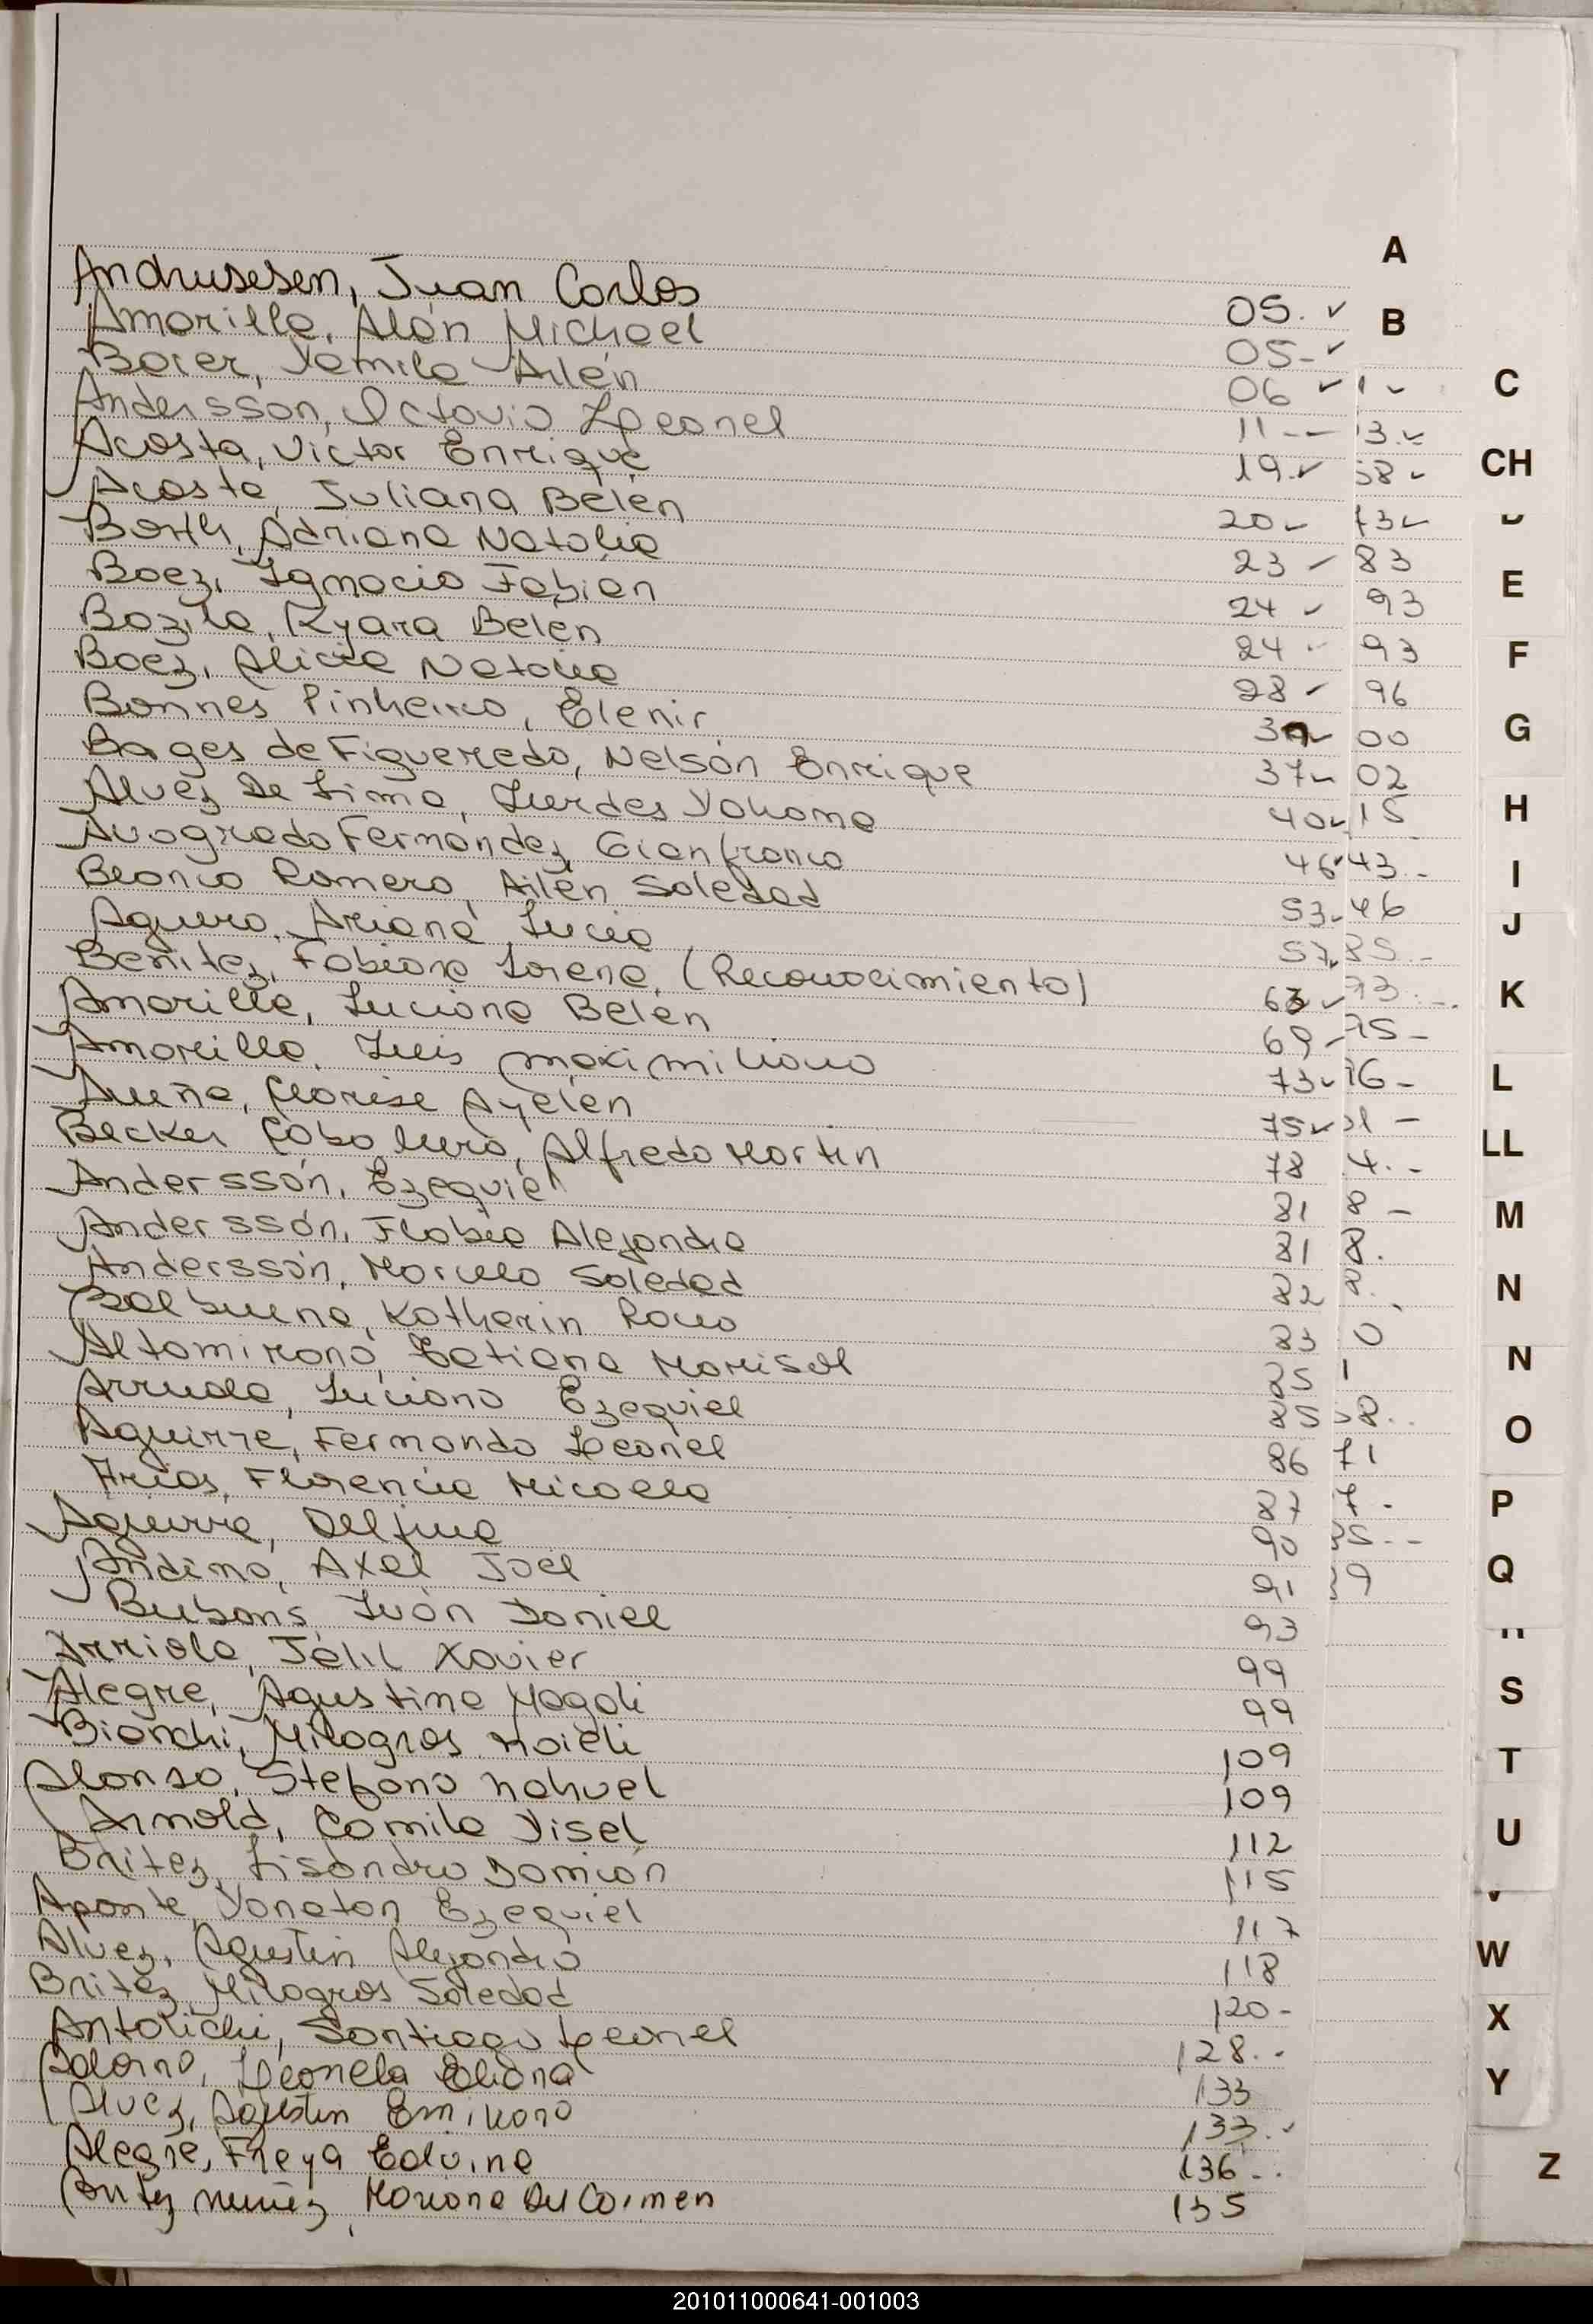 A
Andrusesen, Juan Carlos 05. ✓
B
Amarilla, Alan Michael 05-✓
Baier, Yamila Ailén 06 ✓ 1 -
C
Andersson, Octavio Leonel 11 -- 13.✓
Acosta, Victor Enrique 19.✓ 58 -
CH
Acosta, Juliana Belén 20 ✓ 73 ✓
Borth, Adriana Natalia 23 - 83
E
Baez, Ignacio Fabian 24 - 93
Bazila, Kyara Belén 24 - 93
F
Baez, Alicia Natalia 28 - 96
Bonnes Pinheiro, Elenir 00
G
Borges de Figueredo, Nelson Enrique 37 - 02
Alvez De Lima, Lurdes Yohana 40 ✓ 15
H
Avogredo Fernández, Gianfranco 46 43.-
I
Blanco Romero, Ailén Soledad 53 - 46
J
Aguero, Ariana Lucia 57 85.-
Benitez, Fabiana Lorena, (Reconocimiento)
K
Amarilla, Luciana Belén 69 -
Amarilla, Luis Maximiliano 73 -
L
Ayelén 75 ✓
Becker Caballero, Alfredo Martin 78 4.-
LL
Andersson, Ezequiel 81 8 -
M
Andersson, Flabia Alejandra 81 8.
Andersson, Marcelo Soledad 82 8.
N
Balbuena, Katherin Rocio 83 0
N
Altamirano, Tatiana Marisol 85 1
Arruda, Luciano Ezequiel 85 58..
O
Aguirre, Fernando Leonel 86 71
Arias, Florencia Micaela 87 7.
P
Aguirre, Delfina 90
Andino, Axel Joel 91
Q
Ivón Daniel 93
Arriola, Xavier 99
S
Alegre, Agustina Magali 99
Bianchi, Milagros 109
T
Alonso, Stefano Nahuel 109
Arnold, Camila Yisel 112
U
Britez, Lisandro Damián 115
Aponte, Yonatan Ezequiel 117
W
Alvez, Agustin Alejandro 118
Britez, Milagros Soledad 120-
X
Santiago Leonel 128..
Leonela Eliana 133
Y
Alvez, Agustin Emiliano 133..
Alegre, Freya Edvina 136..
Z
Nuñez, Mariana Del Carmen 135
201011000641-001003